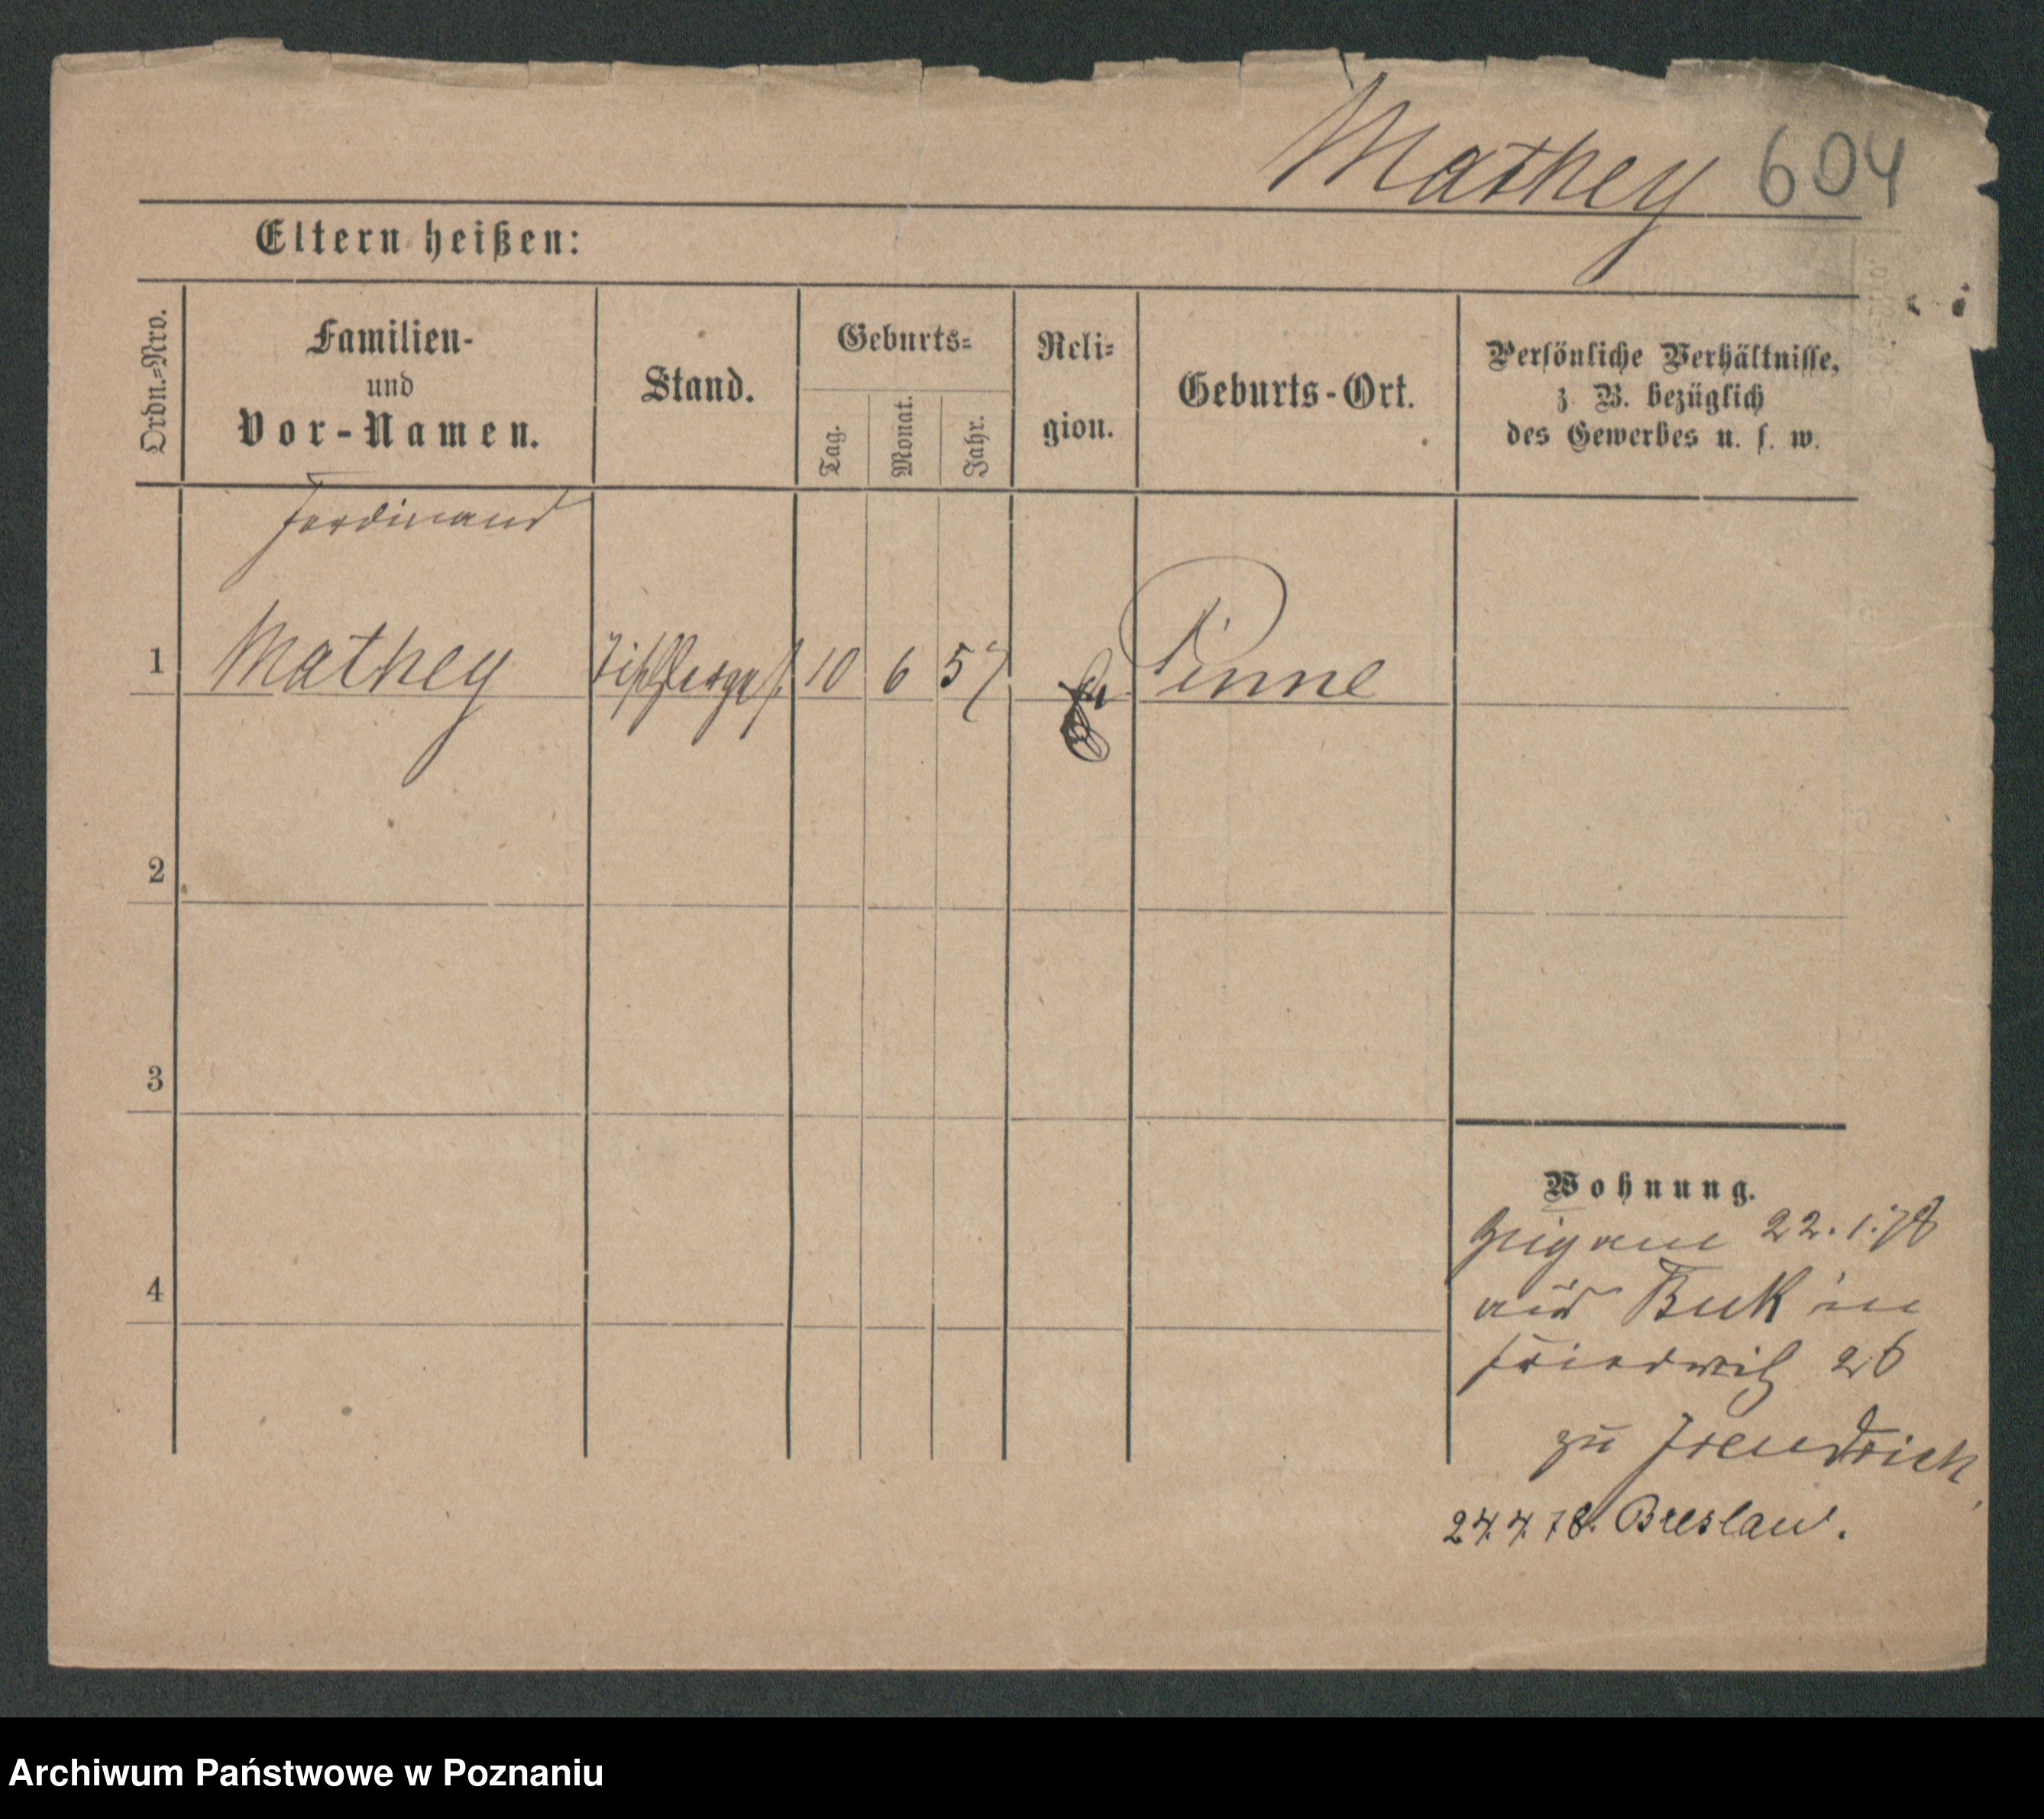 Mathey 604
Eltern heißen:
Ordn.=Nro.
Familien-
und
Vor-Namen.
Stand.
Geburts=
Tag.
Monat.
Jahr.
Reli=
gion.
Geburts-Ort.
Persönliche Verhältnisse,
z. B. bezüglich
des Gewerbes u. s. w.
Ferdinand
1 Mathey Tischlerges. 10 6 57 Pinne
2
3
4
Wohnung.
22.1.78
aus Buk in
26
zu
24.4.78. Breslau.
Archiwum Państwowe w Poznaniu